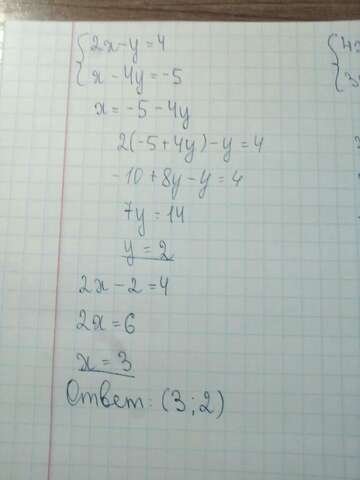 2x-y=4
x-4y=-5
x=-5-4y
2(-5+4y)-y=4
-10+8y-y=4
7y=14
y=2
2x-2=4
2x=6
x=3
Ответ: (3;2)